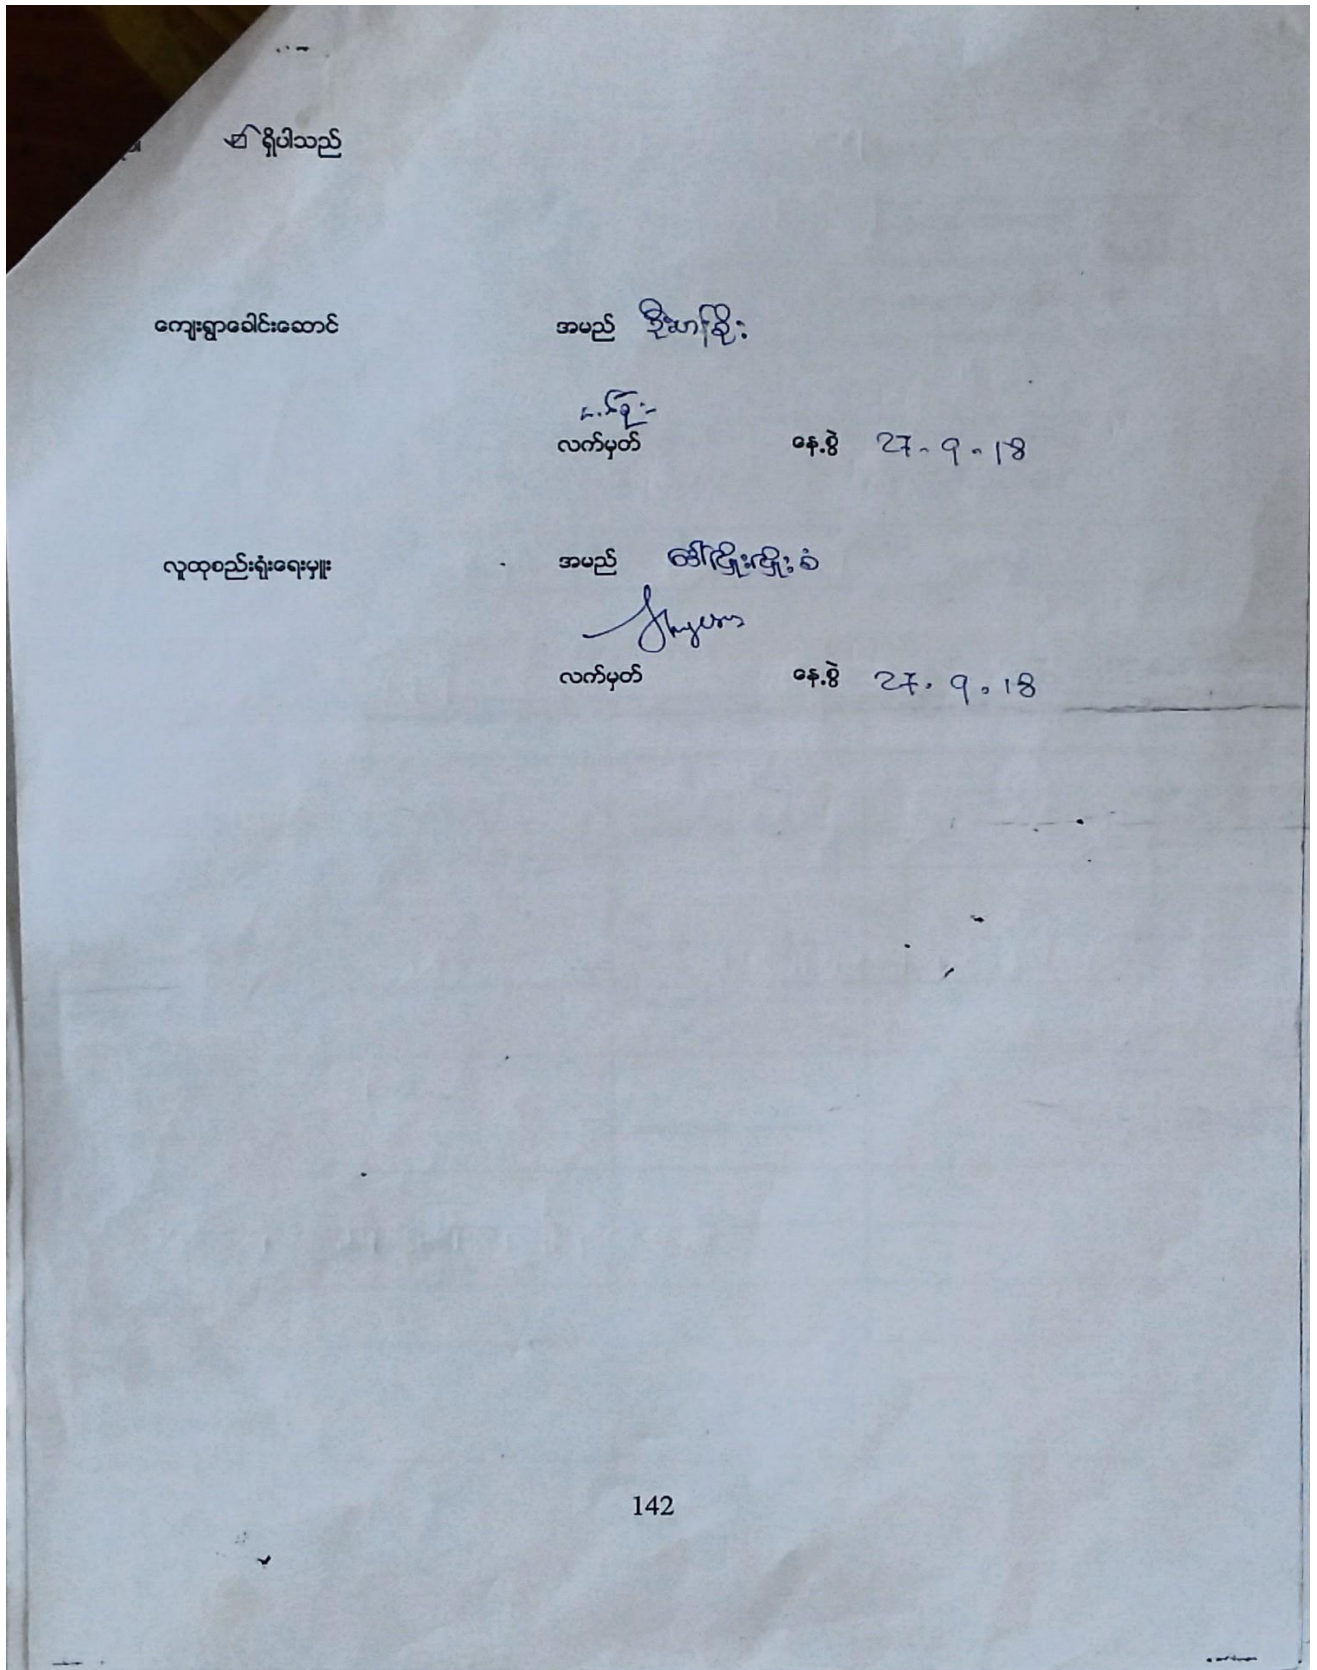 ရှိပါသည်
ကျေးရွာခေါင်းဆောင် အမည် ဦးဟန်စိုး
လက်မှတ် နေ့စွဲ 27.9.18
လူထုစည်းရုံးရေးမှူး အမည် ဒေါ်ဖြိုးဖြိုးစံ
လက်မှတ် နေ့စွဲ 27.9.18
142